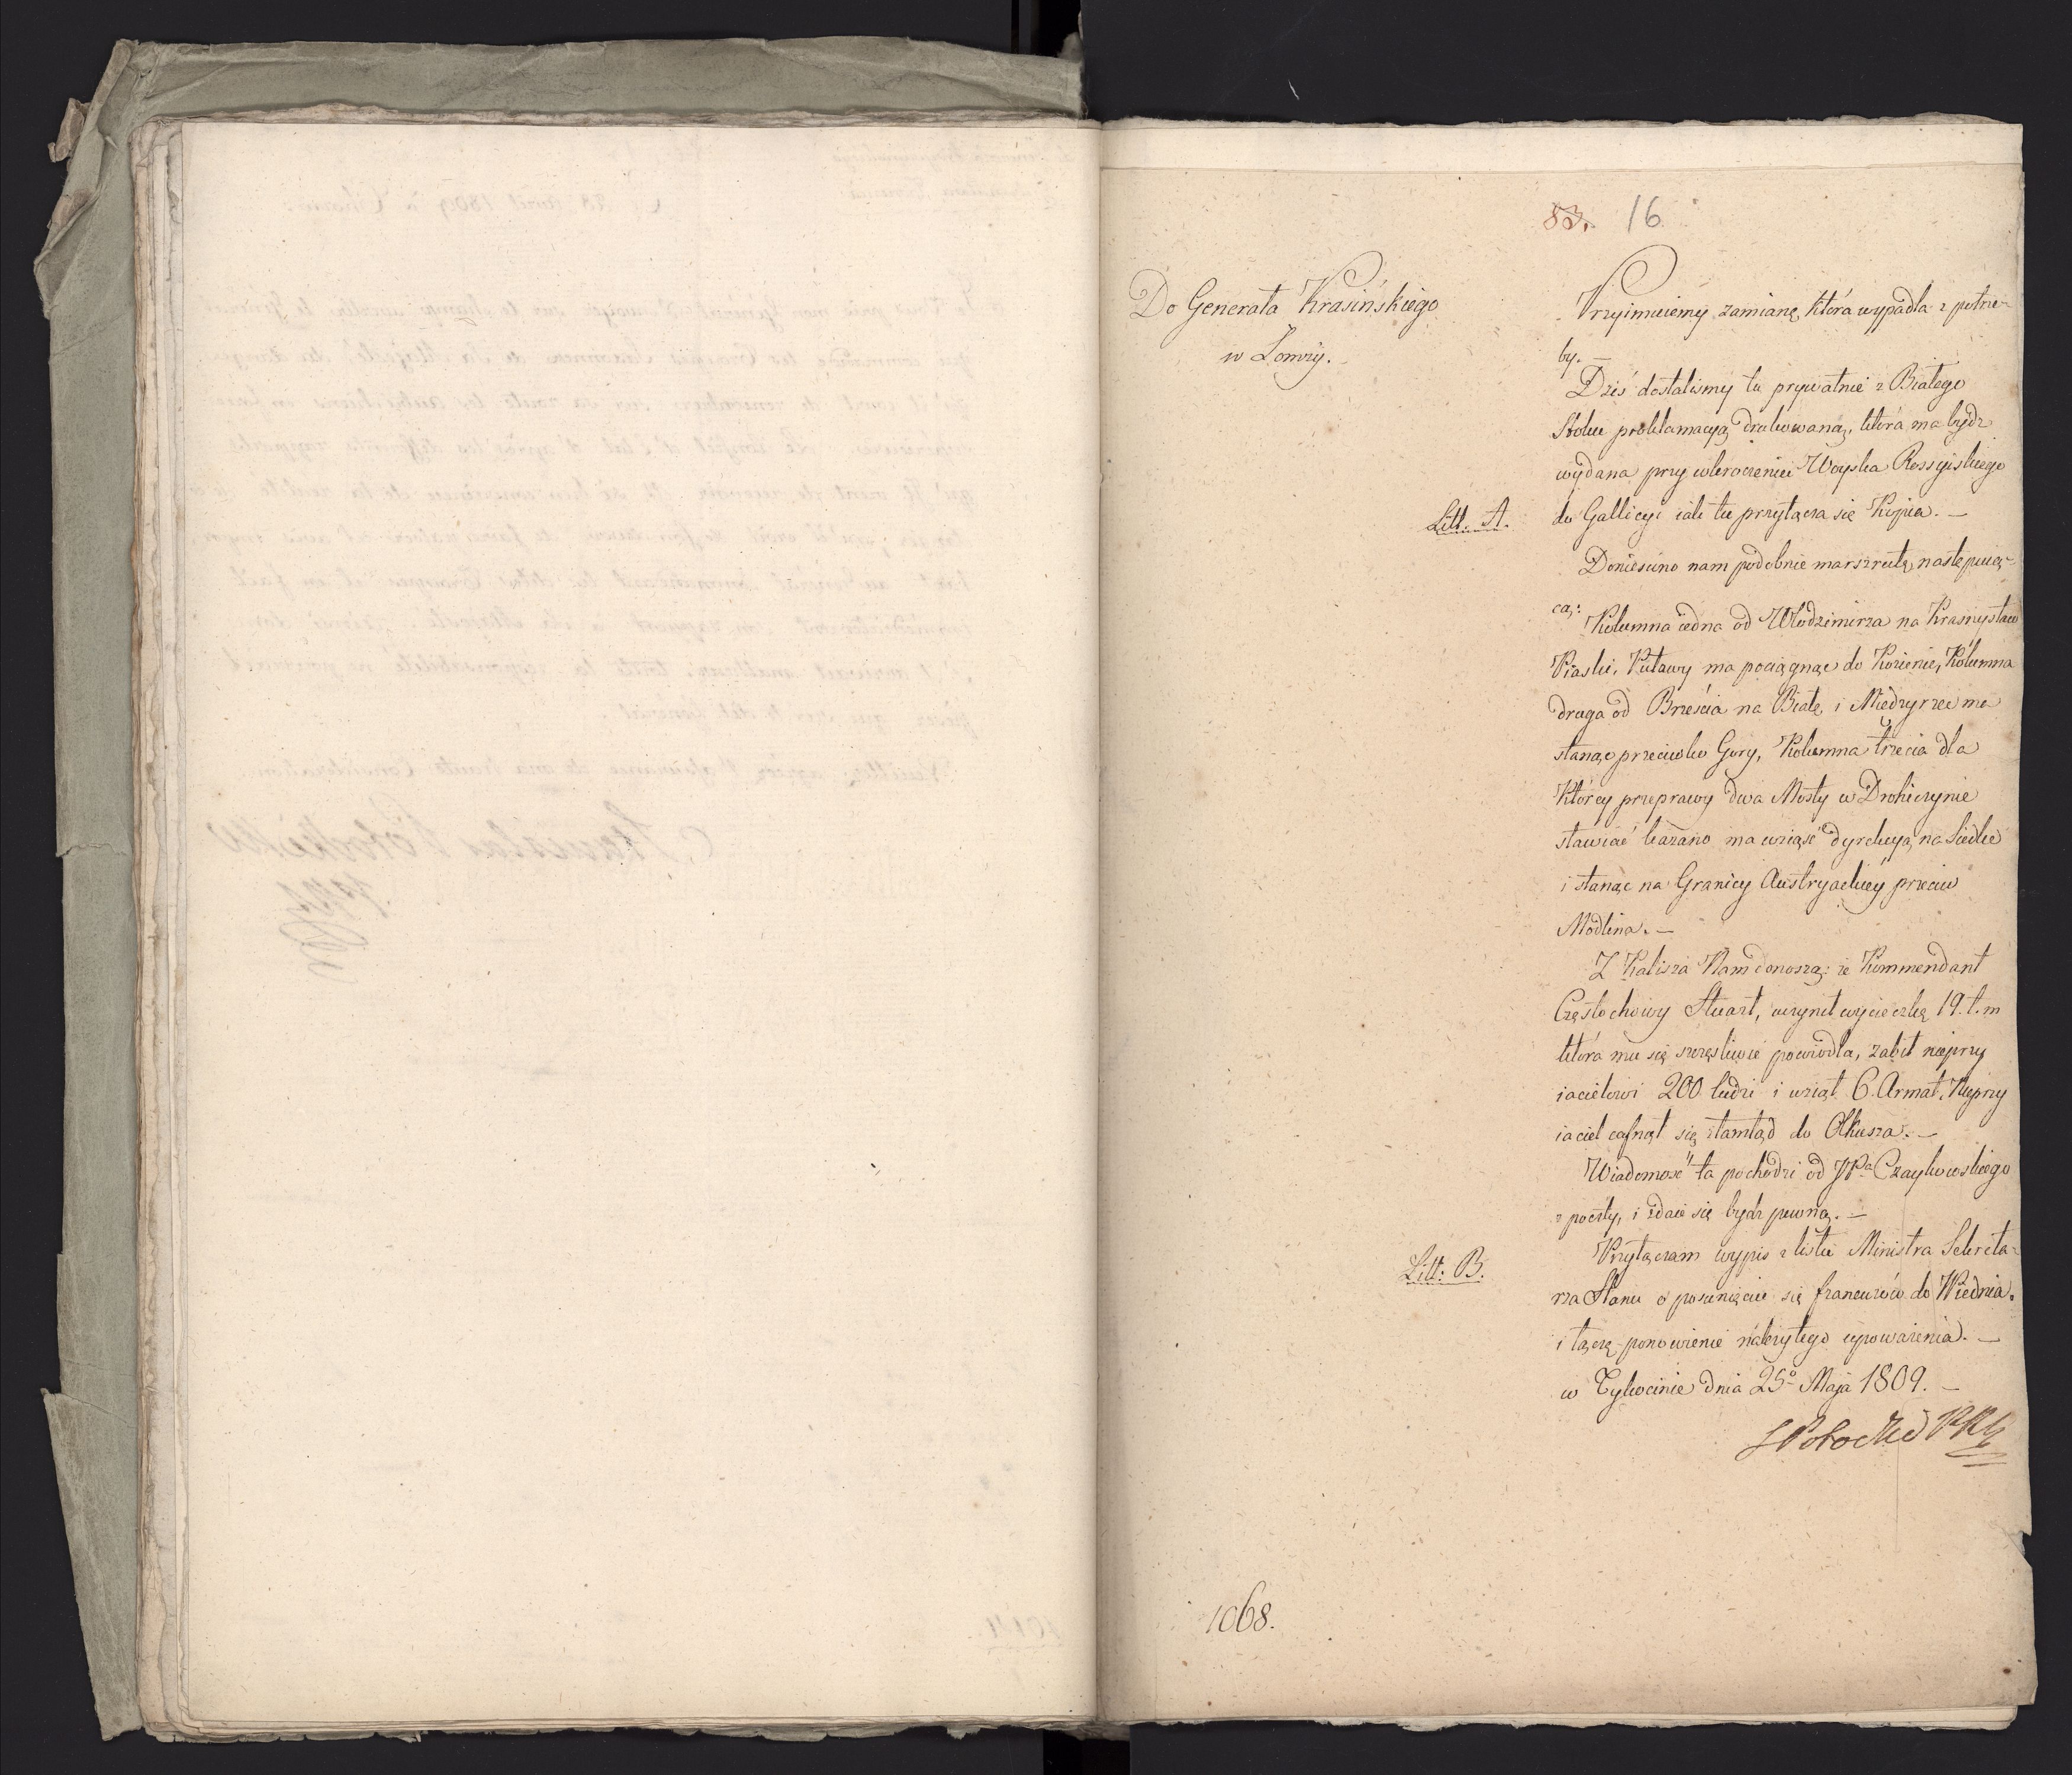 83. 16.
Do Generała Krasińskiego
w Łomży. –
Przyimuiemy zamianę, która wypadła z potrze-
by. –
Dziś dostaliśmy tu prywatnie z Białego
Stoku proklamacyą drukowaną, która ma bydź
wydana przy wkroczeniu Woyska Rossyiskiego
Litt. A.
do Gallicyi iak tu przyłącza się Kopia. –
Doniesiono nam podobnie marszrutę następuią-
cą:
Kolumna iedna od Włodzimirza na Krasnystaw
Piaski, Puławy ma pociągnąć do Kozienic, Kolumna
druga od Brześcia na Białę i Międzyrzec ma
stanąć przeciwko Gory, Kolumna trzecia dla
Którey przeprawy dwa Mosty w Drohiczynie
stawiać kazano ma wziąść dyrekcyą na Siedlce
i stanąć na Granicy Austryackiey przeciw
Modlina. –
Z Kalisza Nam donoszą: że Kommendant
Częstochowy Stuart, uczynił wycieczkę 19. t. m
która mu się szczęśliwie powiodła, zabił nieprzy
iacielowi 200 ludzi i wziął 6. Armat. Nieprzy
iaciel cofnął się ztamtąd do Olkusza. –
Wiadomość ta pochodzi od JPa Czaykowskiego
z poczty, i zdaie się bydź pewną. –
Przyłączam wypis z listu Ministra Sekreta-
Litt. B.
rza Stanu o posunięciu się francuzów do Wiednia.
i łączę ponowienie należytego upoważenia. –
w Tykocinie dnia 25o Maja 1809. –
SPotocki PRS
1068.